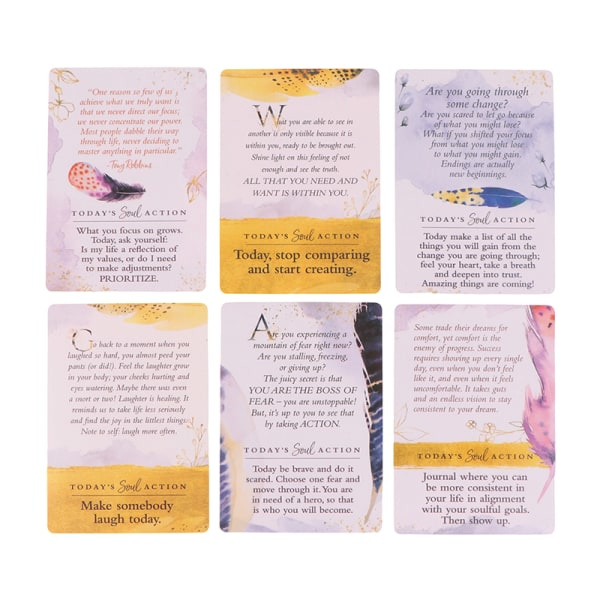 "One reason so few of us
achieve what we truly want is
that we never direct our focus;
we never concentrate our power.
Most people dabble their way
through life, never deciding to
master anything in particular."
-Tony Robbins
TODAY'S Soul ACTION
What you focus on grows.
Today, ask yourself:
Is my life a reflection of
my values, or do I need
to make adjustments?
PRIORITIZE.
What you are able to see in
another is only visible because it is
within you, ready to be brought out.
Shine light on this feeling of not
enough and see the truth.
ALL THAT YOU NEED AND
WANT IS WITHIN YOU.
TODAY'S Soul ACTION
Today, stop comparing
and start creating.
Are you going through
some change?
Are you scared to let go because
of what you might lose?
What if you shifted your focus
from what you might lose
to what you might gain?
Endings are actually
new beginnings.
TODAY'S Soul ACTION
Today make a list of all the
things you will gain from the
change you are going through;
feel your heart, take a breath
and deepen into trust.
Amazing things are coming!
Go back to a moment when you
laughed so hard, you almost peed your
pants (or did!). Feel the laughter grow
in your body; your cheeks hurting and
eyes watering. Maybe there was even
a snort or two! Laughter is healing. It
reminds us to take life less seriously
and find the joy in the littlest things.
Note to self: laugh more often.
TODAY'S Soul ACTION
Make somebody
laugh today.
Are you experiencing a
mountain of fear right now?
Are you stalling, freezing,
or giving up?
The juicy secret is that
YOU ARE THE BOSS OF
FEAR – you are unstoppable!
But, it's up to you to see that
by taking ACTION.
TODAY'S Soul ACTION
Today be brave and do it
scared. Choose one fear and
move through it. You are
in need of a hero, so that
is who you will become.
Some trade their dreams for
comfort, yet comfort is the
enemy of progress. Success
requires showing up every single
day, even when you don't feel
like it, and even when it feels
uncomfortable. It takes guts
and an endless vision to stay
consistent to your dream.
TODAY'S Soul ACTION
Journal where you can
be more consistent in
your life in alignment
with your soulful goals.
Then show up.